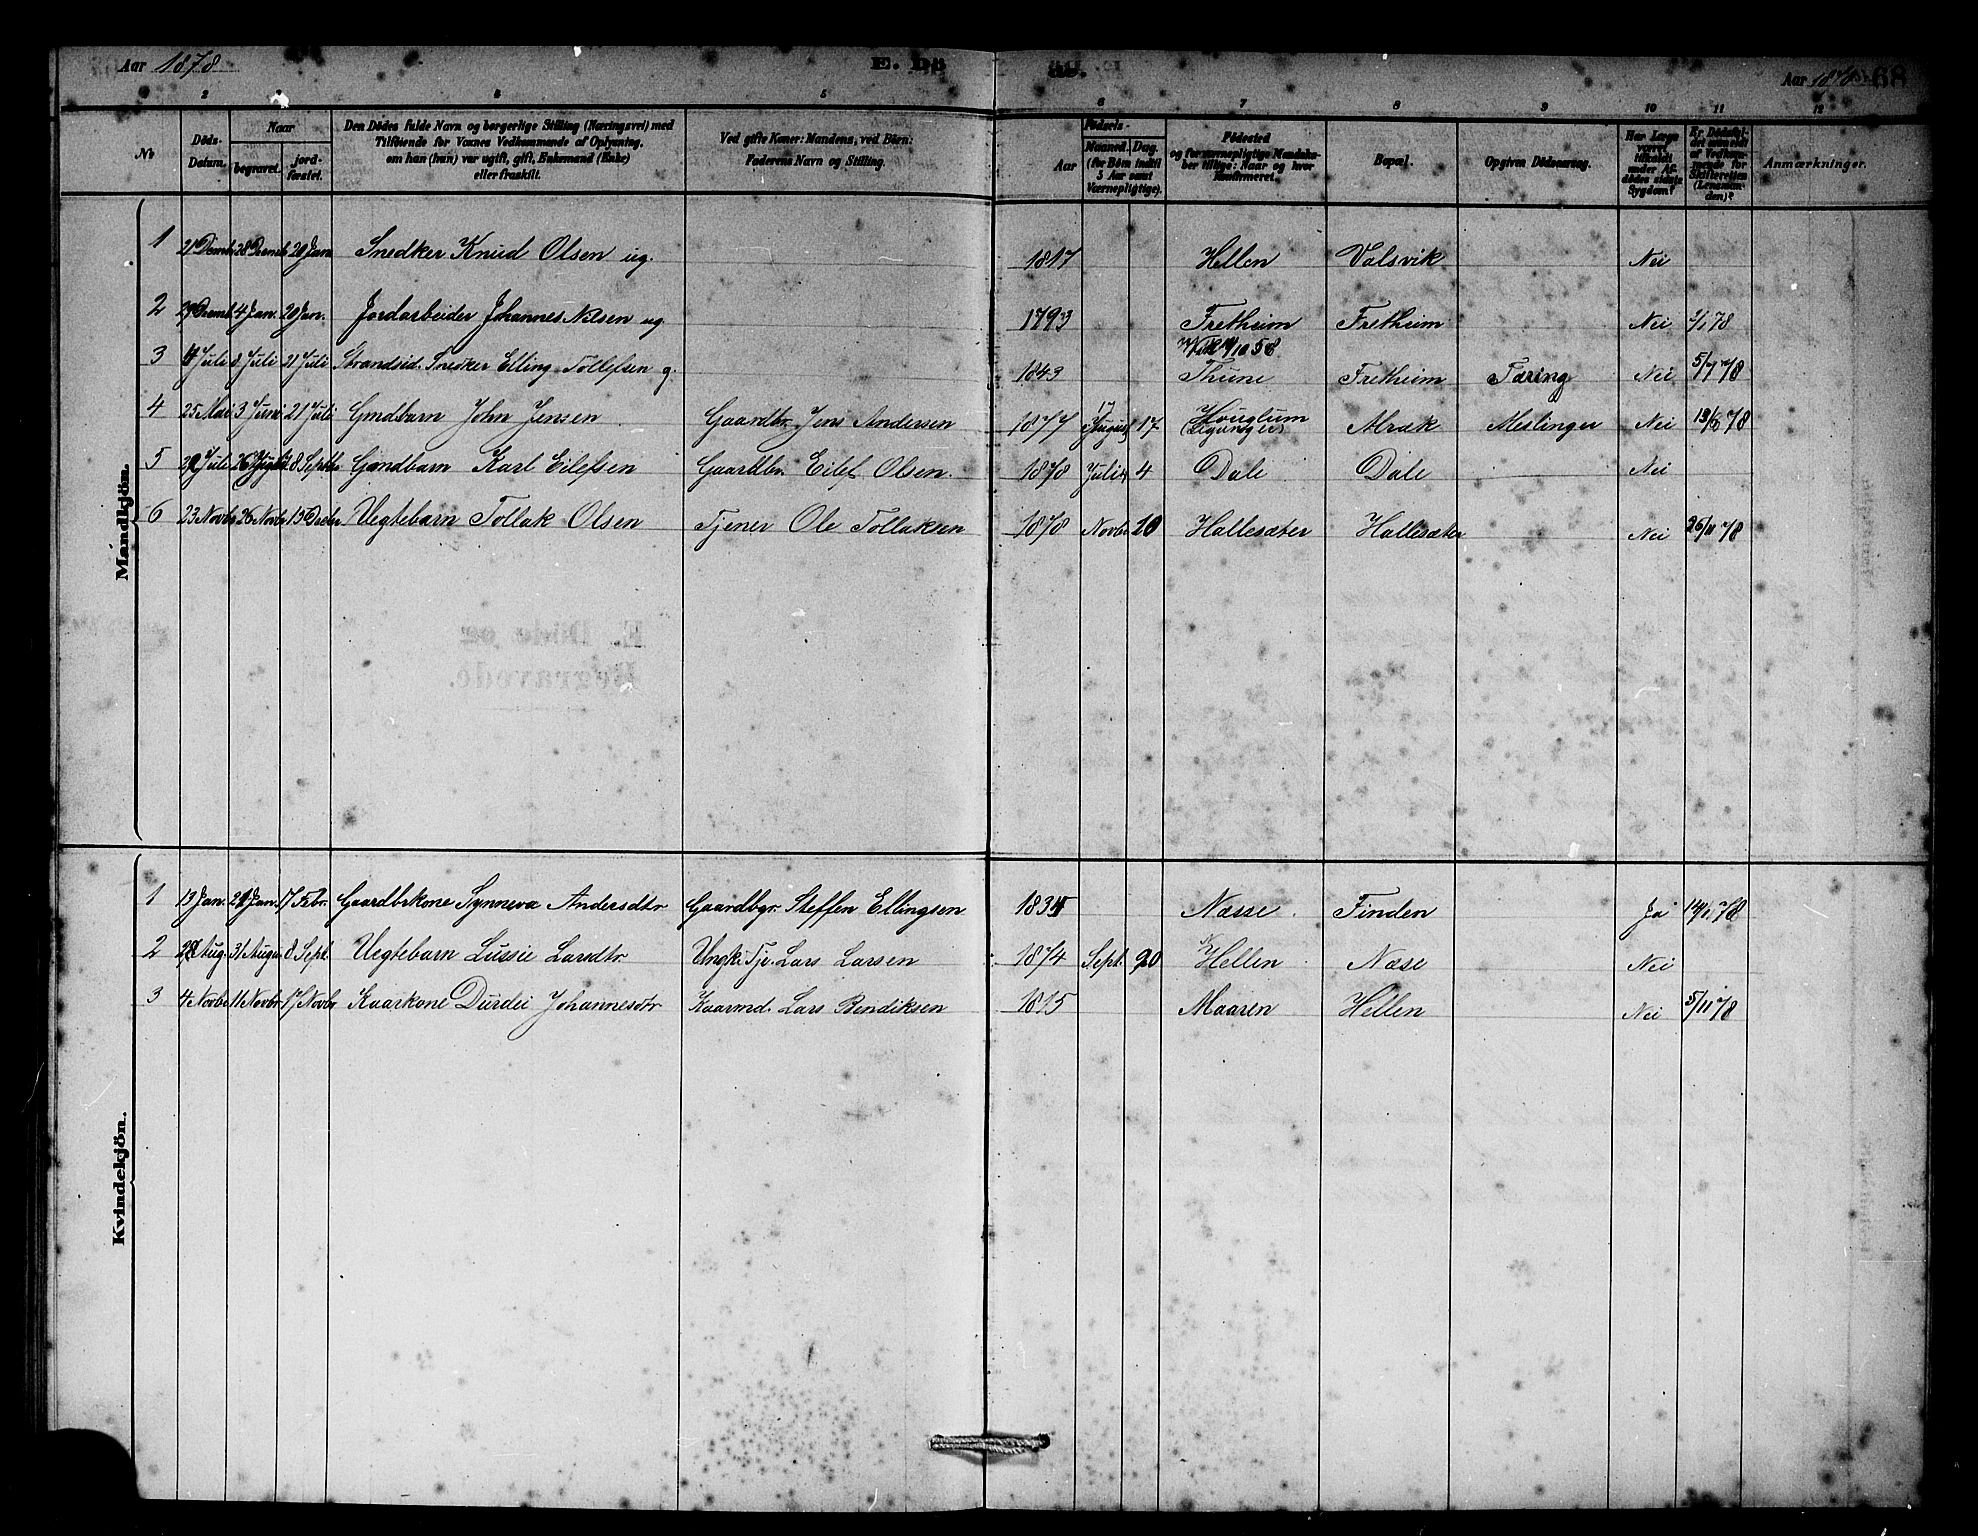 Aar 1878
E. Dö
de.
Aar 1878.
68
2 4 5 6 7 8 9 10 11 12
No
Döds-Datum.
Naar
begravet.
jord-fæstet.
Den Dödes fulde Navn og borgerlige Stilling (Næringsvei) med
Tilföiende for Voxnes Vedkommende af Oplysning,
om han (hun) var ugift, gift, Enkemand (Enke)
eller fraskilt.
Ved gifte Koner: Mandens, ved Börn:
Faderens Navn og Stilling.
Födsels-
Aar
Maaned. Dag.
(for Börn indtil
5 Aar samt
Værnepligtige).
Födested
og for værnepligtige Mandskaber tillige: Naar og hvor
Konfirmeret.
Bopæl.
Opgiven Dödsaarsag.
Har Læge
været
tilkaldt
under Afdödes sidste
Sygdom?
Er Dödsfaldet anmeldt
af Vedkommende for
Skifteretten
(Lensmanden)?
Anmærkninger.
Mandkjön.
1 28 Decemb 20 Jan Snedker Knud Olsen ug. 1817 Hellen Valsvik Nei
2 4 Jan. 20 Jan. Jordarbeider Johannes Nilsen ug 1793 Fretheim Fretheim Nei
3 4 Juli 8 Juli 21 Juli Strandsid. Snedker Elling Tollefsen g. 1843 Thune Fretheim Tæring Nei 5/7 78
4 25 Mai 3 Juni 21 Juli Gmdbarn John Jensen Gaardbr. Jens Andersen 1877 August 17 Houglum Mræk Meslinger Nei
5 Juli 8 Septb Gmdbarn Karl Eilefsen Gaardbr. Eilef Olsen. 1878 Juli 4 Dale Dale Nei
6 23 Novbr 26 Novbr 15 Decbr Uegtebarn Tollak Olsen Tjener Ole Tollaksen 1878 Novbr Hallesæter Hallesæter Nei 26/11 78
E. Döde og
Begravede.
Kvindekjön.
1 13 Jan. 21 Jan. 17 Febr. Gaardbrkone Synneva Andersdtr Gaardbgr. Steffen Ellingsen Næsse Finden Ja 14/1 78
2 Aug. 31 Augu. 8 Sept. Uegtebarn Lussie Larsdtr Ungk. Tje. Lars Larsen 1874 Sept. 20 Hellen Næse Nei
3 4 Novbr 11 Novbr 17 Novbr Kaarkone Durdei Johannesdtr Kaarmd. Lars Bendiksen 1815 Maaren Hellen Nei 5/11 78